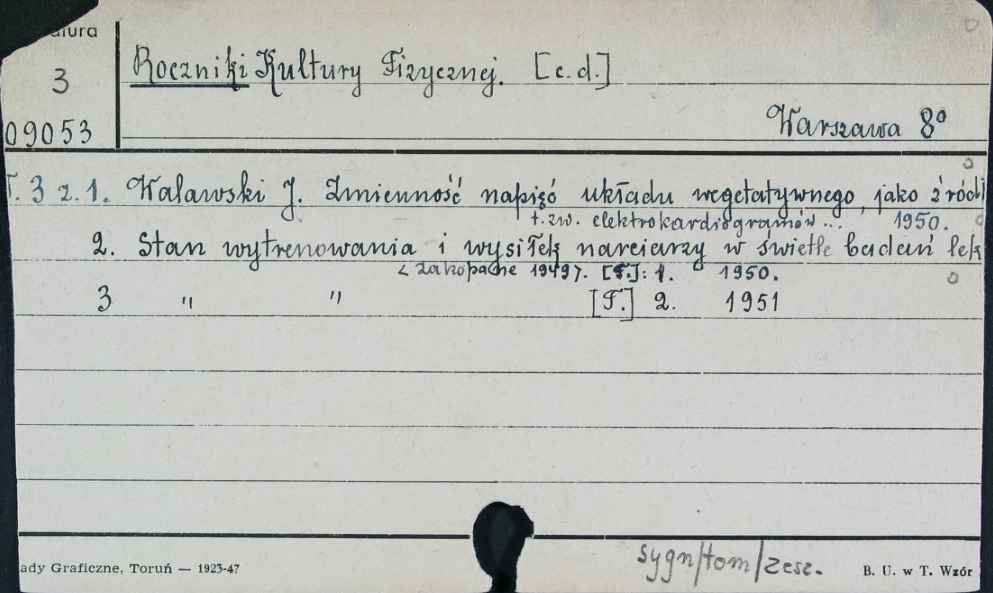 atura
3
09053
Roczniki Kultury Fizycznej. [c.d.]
Warszawa 8º
T. 3 z. 1. Walawski J. Zmienność napięć układu wegetatywnego, jako źródł
t. zw. elektrokardiogramów... 1950.
2. Stan wytrenowania i wysiłek narciarzy w świetle badań lek
< Zakopane 1949>. [T.]: 1. 1950.
3 " " [T.] 2. 1951
ady Graficzne, Toruń — 1923-47
sygn/tom/zesz.
B. U. w T. Wzór